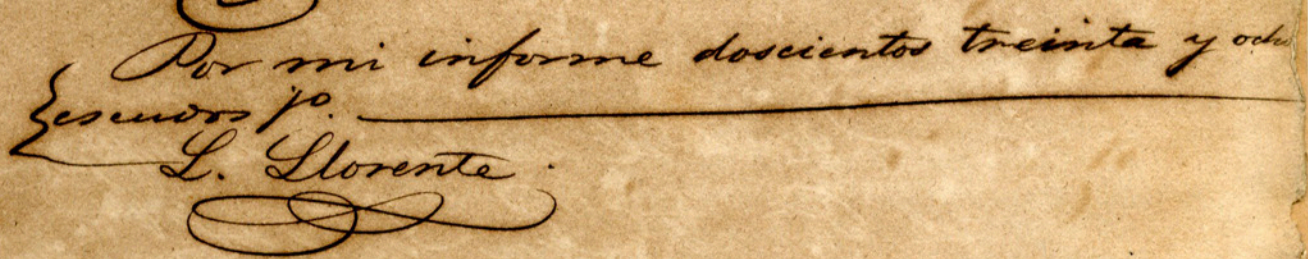 Por mi informe doscientos treinta y ocho
escudos
L. Llorente.